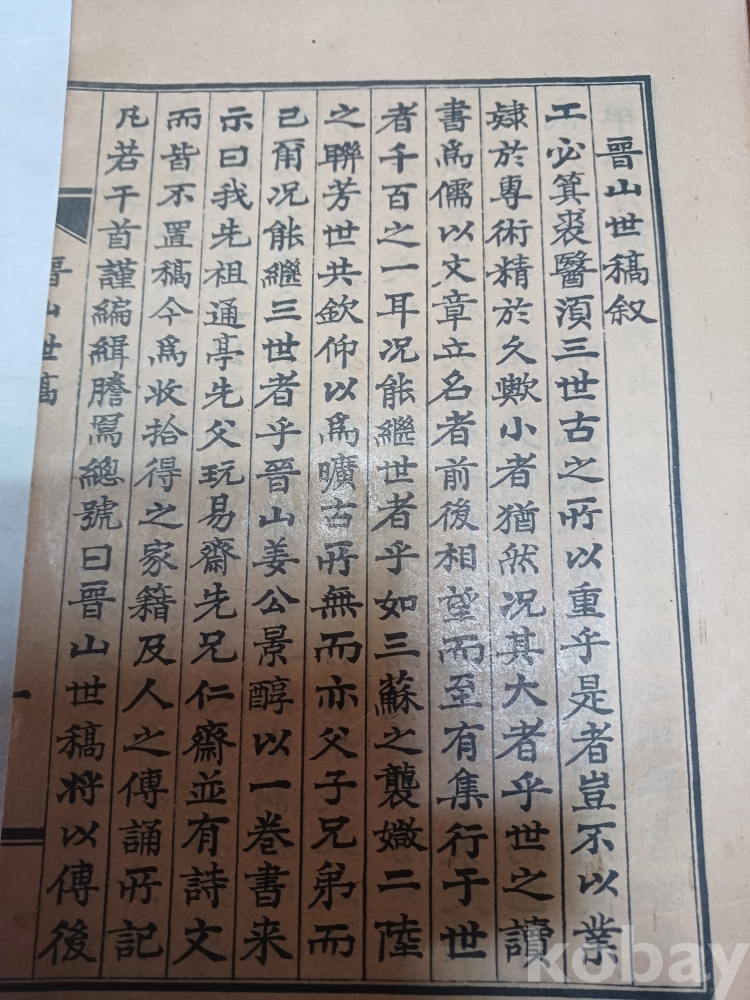 晉山世稿叙
工必箕裘醫須三世古之所以重乎是者豈不以業
隸於專術精於久歟小者猶然况其大者乎世之讀
書爲儒以文章立名者前後相望而至有集行于世
者千百之一耳况能繼世者乎如三蘇之襲媺二陸
之聯芳世共欽仰以爲曠古所無而亦父子兄弟而
已爾况能繼三世者乎晉山姜公景醇以一卷書来
示曰我先祖通亭先父玩易齋先兄仁齋並有詩文
而皆不置稿今爲收拾得之家籍及人之傳誦所記
凡若干首謹編緝謄寫總號曰晉山世稿將以傳後
晉山世稿
一
kobay